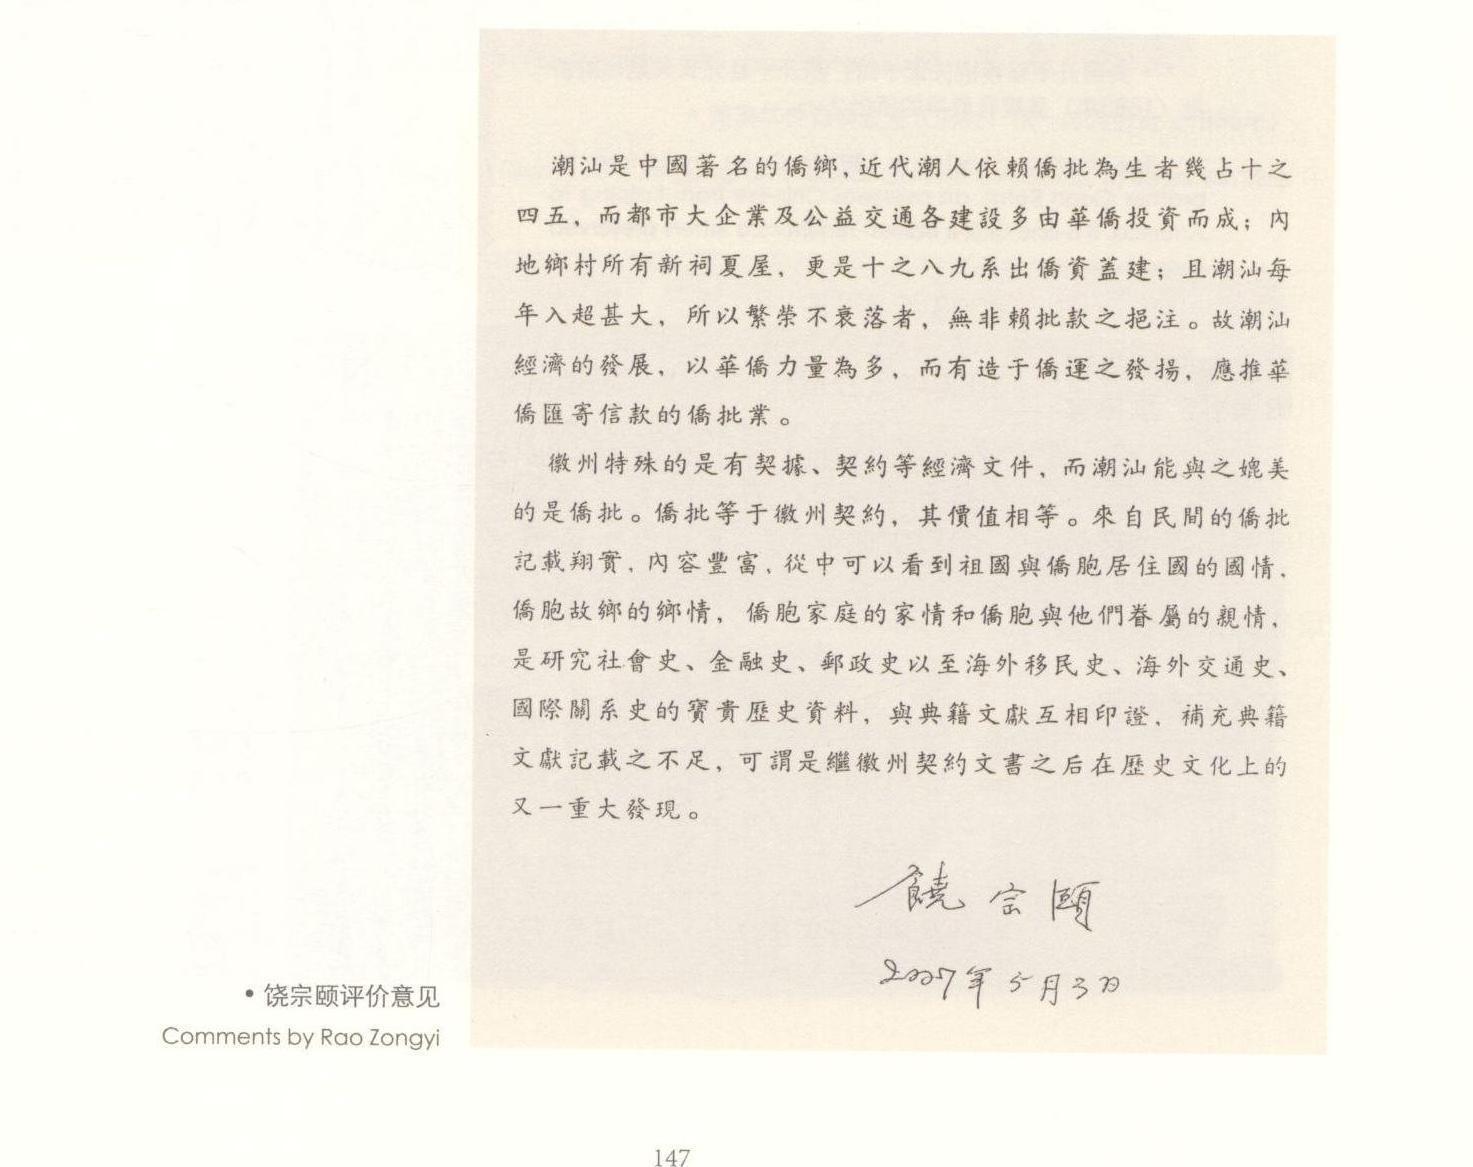 潮汕是中國著名的僑鄉，近代潮人依賴僑批為生者幾占十之
四五，而都市大企業及公益交通各建設多由華僑投資而成；內
地鄉村所有新祠夏屋，更是十之八九系出僑資蓋建；且潮汕每
年入超甚大，所以繁荣不衰落者，無非賴批款之挹注。故潮汕
經濟的發展，以華僑力量為多，而有造于僑運之發揚，應推華
僑匯寄信款的僑批業。
徽州特殊的是有契據、契約等經濟文件，而潮汕能與之媲美
的是僑批。僑批等于徽州契約，其價值相等。來自民間的僑批
記載翔實，內容豐富，從中可以看到祖國與僑胞居住國的國情，
僑胞故鄉的鄉情，僑胞家庭的家情和僑胞與他們眷屬的親情，
是研究社會史、金融史、郵政史以至海外移民史、海外交通史、
國際關系史的寶貴歷史資料，與典籍文獻互相印證，補充典籍
文獻記載之不足，可謂是繼徽州契約文書之后在歷史文化上的
又一重大發現。
饒宗頤
2007年5月3日
• 饶宗颐评价意见
Comments by Rao Zongyi
147